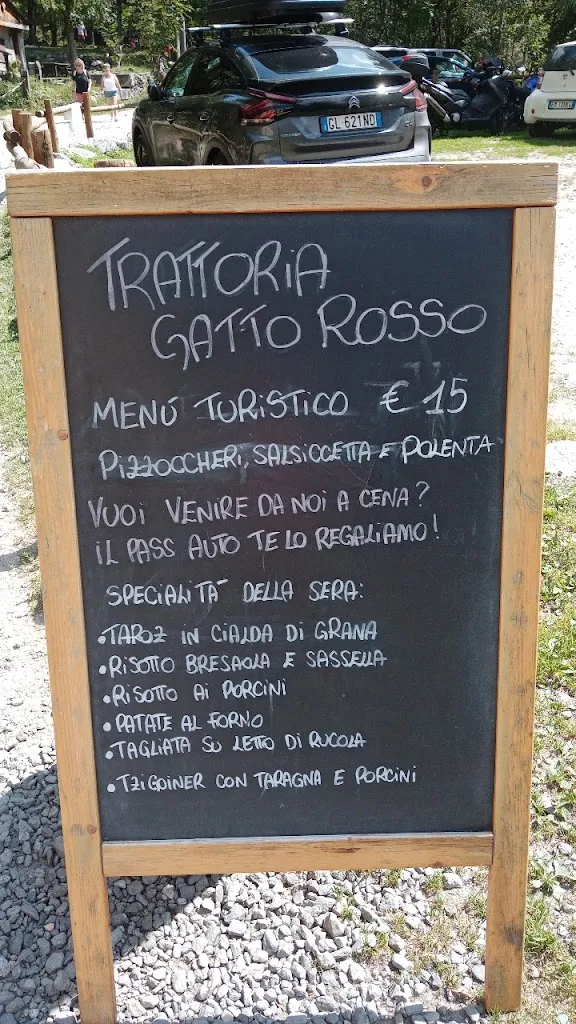 GL 621ND
TRATTORIA
GATTO ROSSO
MENÚ TURISTICO € 15
PIZZOCCHERI, SALSICCETTA E POLENTA
VUOI VENIRE DA NOI A CENA?
IL PASS AUTO TE LO REGALIAMO!
SPECIALITÀ DELLA SERA:
•TAROZ IN CIALDA DI GRANA
•RISOTTO BRESAOLA E SASSELLA
•RISOTTO AI PORCINI
•PATATE AL FORNO
•TAGLIATA SU LETTO DI RUCOLA
•TZIGOINER CON TARAGNA E PORCINI